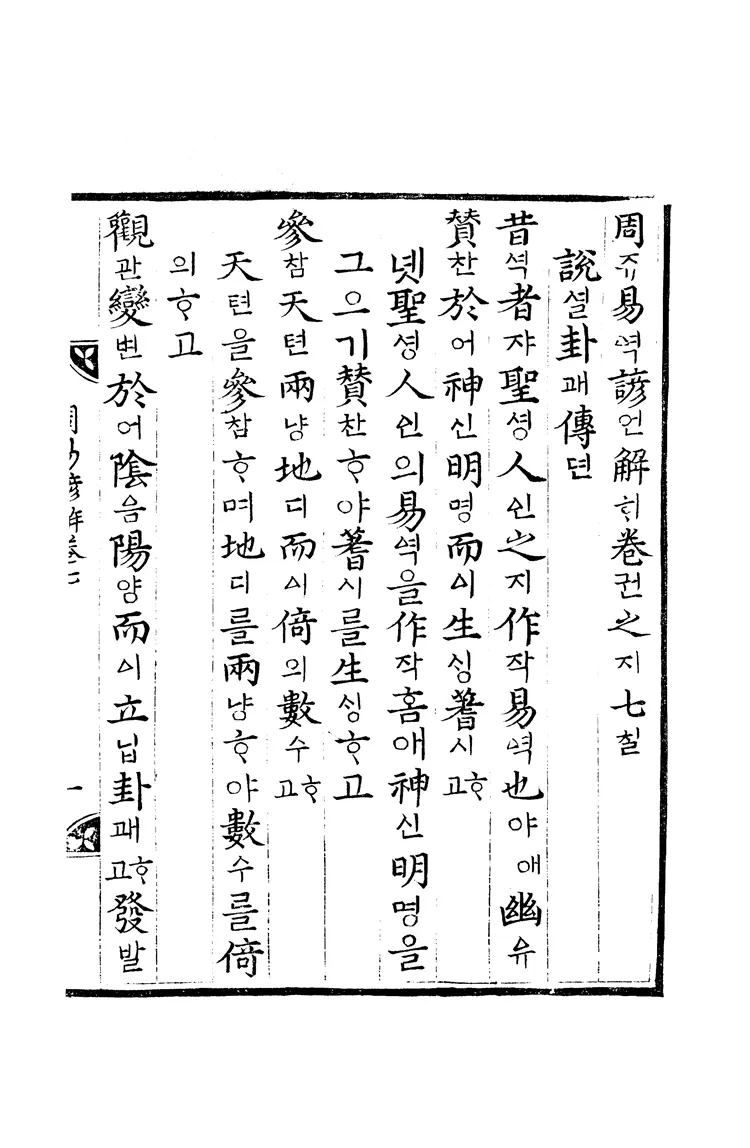 周쥬易역諺언解ᄒᆡ卷권之지七칠
說셜卦괘傳뎐
昔셕者쟈聖셩人인之지作작易역也야애幽유
贊찬於어神신明명而이生ᄉᆡᆼ蓍시ᄒᆞ고
녯聖셩人인의易역을作작홈애神신明명을
그으기贊찬ᄒᆞ야蓍시를生ᄉᆡᆼᄒᆞ고
參참天텬兩냥地디而이倚의數수ᄒᆞ고
天텬을參참ᄒᆞ며地디를兩냥ᄒᆞ야數수를倚
의ᄒᆞ고
觀관變변於어陰음陽양而이立닙卦괘ᄒᆞ고發발
一